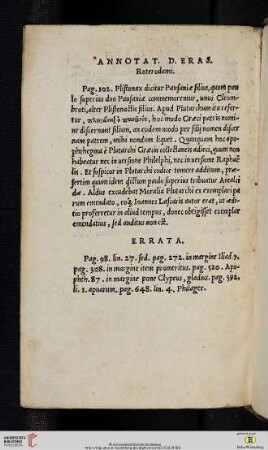 ANNOTAT. D. ERAS.
Roterodami.
Pag. 102. Plistonax dicitur Pausaniæ filius, quum pau
lo superius duo Pausaniæ commemorentur, unus Cleom
broti, alter Plistonactis filius. Apud Plutarchum ita refer
tur, hoc modo Græci patris no
mine discernunt filium, an eodem modo per filij nomen discer
nant patrem, mihi nondum liquet. Quanquam hoc apo
phthegma è Plutarchi Græcis collectaneis adieci, quum non
habeatur nec in uersione Philelphi, nec in uersione Raphaë
lis. Et suspicor in Plutarchi codice temere additum, præ
sertim quum idem dictum paulo superius tribuatur Antalci
dæ. Aldus excudebat Moralia Plutarchi ex exemplari pa
rum emendato, eoq; Ioannes Lascaris autor erat, ut ædi
tio proferretur in aliud tempus, donec obtigisset exemplar
emendatius, sed auditus non est.
ERRATA.
Pag. 98. lin. 27. sed. pag. 272. in margine Iliad.
pag. 308. in margine item promeritus. pag. 520. Apo
phth. 87. in margine pone Clypeus, gladius. pag. 592.
li. 1. apuarum, pag. 648. lin. 4. Philager.